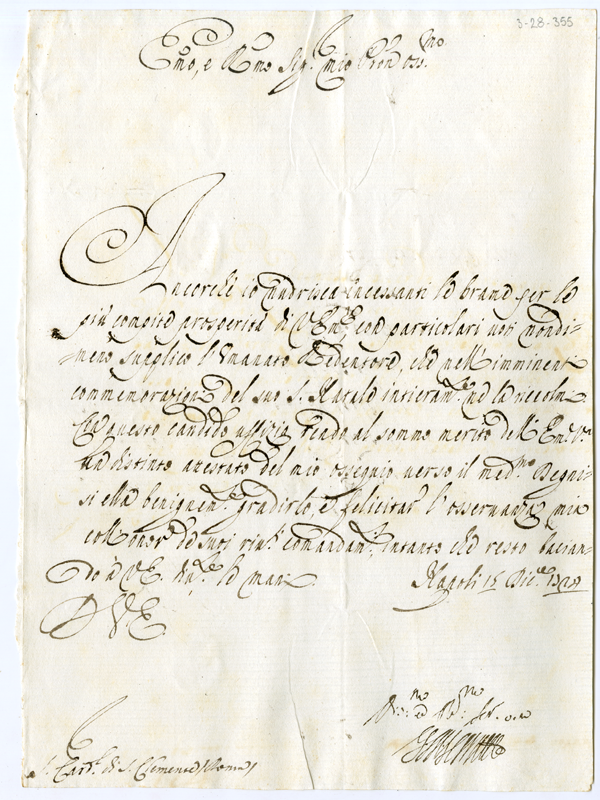 3-28-355
Emo, e Rmo Sig.r mio Pron Oss.mo
Ancorche io nudrisca incessanti le brame per le
più compite prosperità di V. Em.za con particolari voti nondi-
meno supplico l'Umanato Redentore, che nell'imminente
commemorazione del suo S. Natale intieram.te ne la ricolmi.
Con questo candido uffizio rendo al sommo merito dell'Em.za V.ra
un distinto attestato del mio ossequio verso il med.mo Degni-
si ella benignam.te gradirlo, e felicitar l'osservanza mia
coll'onor de suoi riv.ti comandam.ti, intanto che resto bacian-
do à V. E. le mani Napoli 15 Dic.re
D V. E.
S. Card. di S. Clemente (Roma)